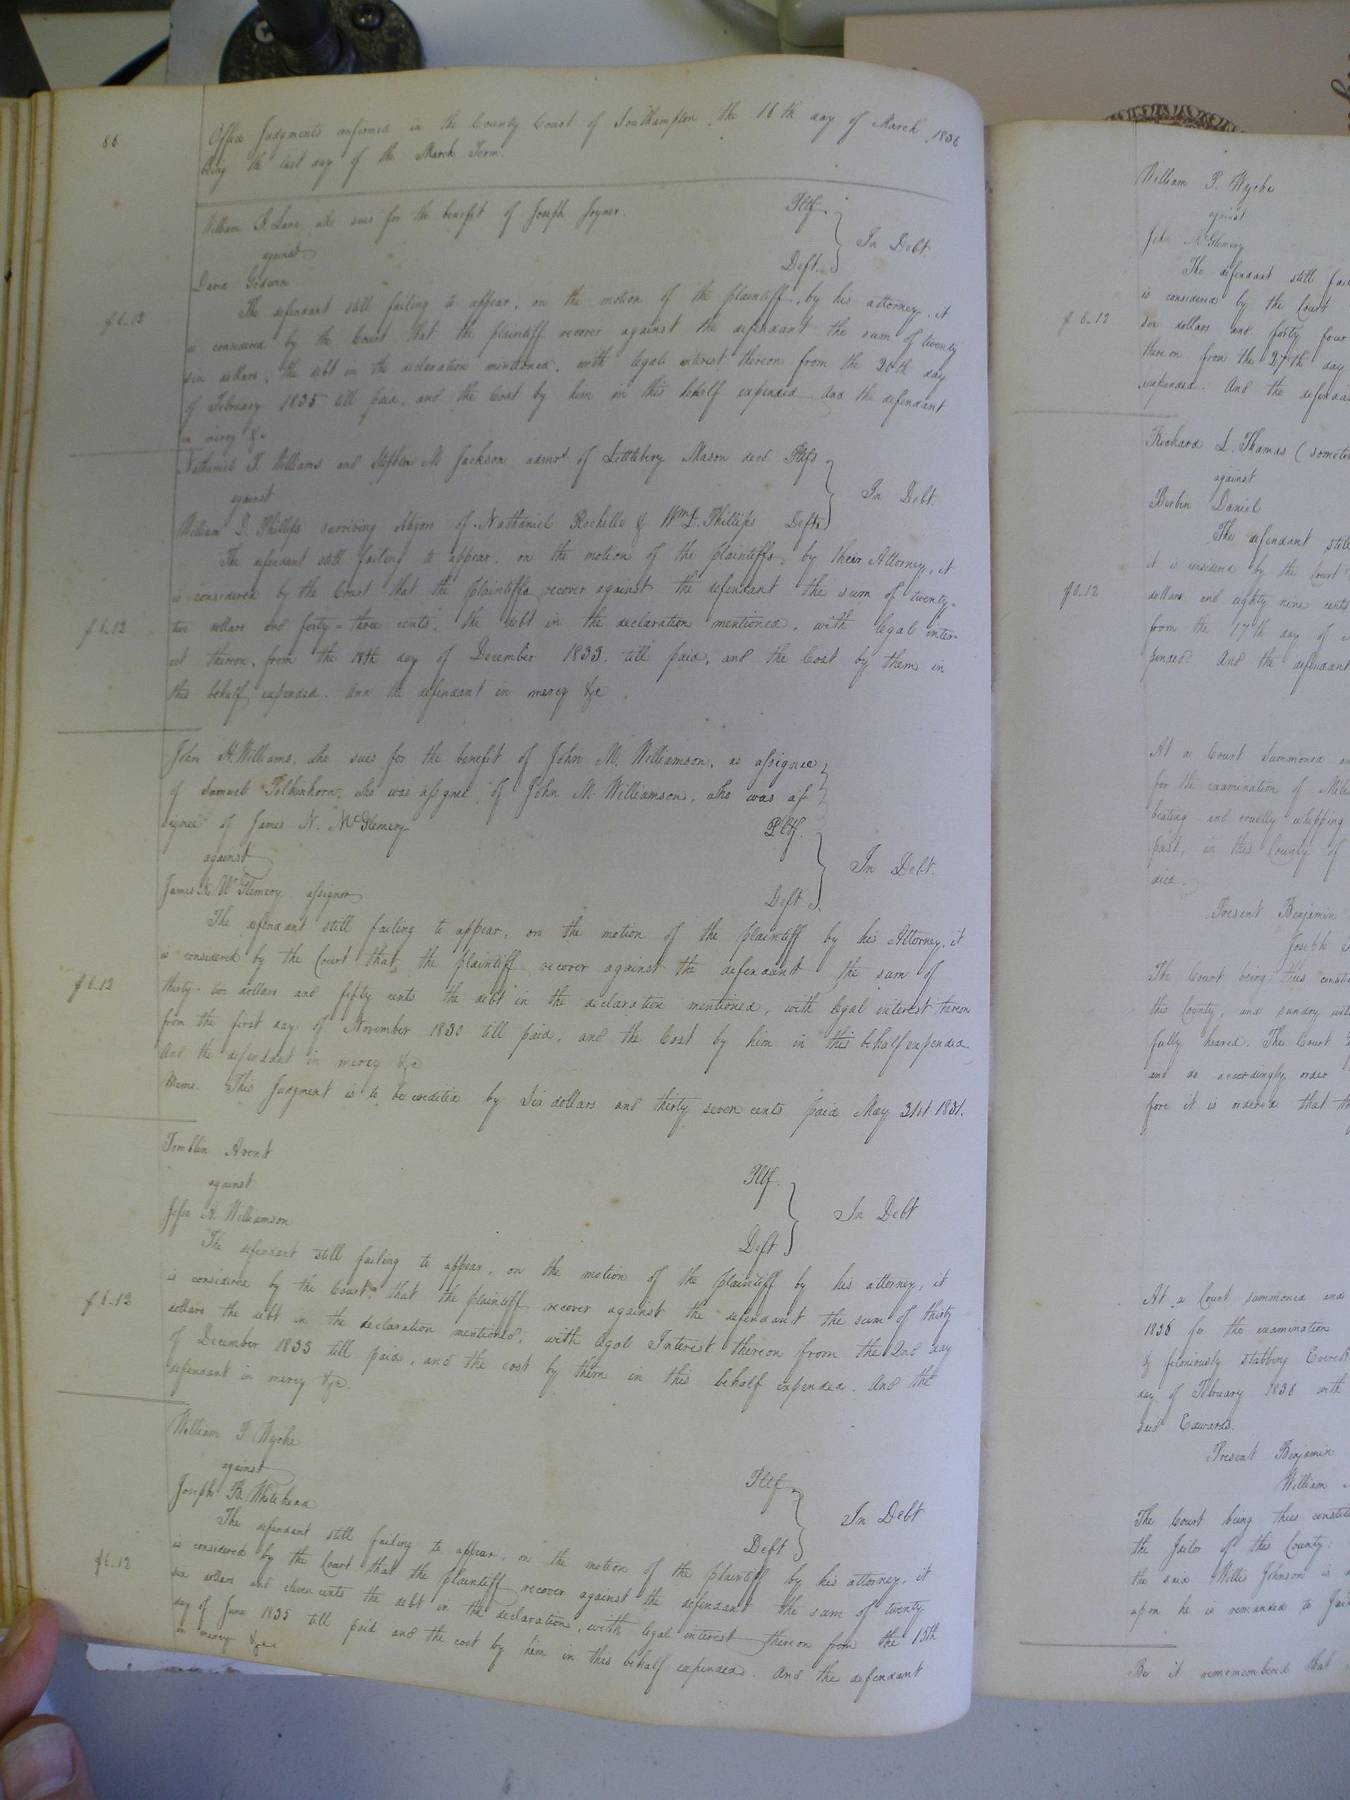 86
Office Judgments confirmed in the County Court of Southampton, the 16th day of March, 1836
being the last day of the March Term.
William B. Lane, who sues for the benefit of Joseph Joyner. Pltf.
against In Debt.
David Godwin Deft.
The defendant still failing to appear, on the motion of the plaintiff, by his attorney, it
$6.13
is considered by the Court that the plaintiff recover against the defendant the sum of twenty
six dollars, the debt in the declaration mentioned, with legal interest thereon from the 20th day
of February 1835 till paid, and the Cost by him in this behalf expended And the defendant
in mercy &c
Nathaniel T. Williams and Stephen M Jackson admrs. of Littlebery Mason decd Pltfs
against In Debt.
William D. Phillips surviving obligors of Nathaniel Rochelle & Wm. D. Phillips Defts
The defendant still failing to appear, on the motion of the plaintiffs, by their Attorney, it
is considered by the Court that the plaintiffs recover against the defendant the sum of twenty-
$6.12
two dollars and forty-three cents, the debt in the declaration mentioned, with legal inter-
est thereon, from the 18th day of December 1833. till paid, and the Cost by them in
this behalf expended. And the defendant in mercy &c.
John H. Williams, who sues for the benefit of John M. Williamson, as assignee
of Samuel Folkinhorn, who was assgnee, of John M. Williamson, who was as
signee of James N. McGlemery Pltf.
against In Debt.
James N McGlemery assignor Deft.
The defendant still failing to appear, on the motion of the plaintiff by his Attorney, it
is considered by the Court that the plaintiff recover against the defendant the sum of
$6.12
thirty-two dollars and fifty cents the debt in the declaration mentioned, with legal interest thereon
from the first day of November 1830 till paid, and the Cost by him in this behalf expended
And the defendant in mercy &c
Memo. This Judgment is to be credited by Six dollars and thirty seven cents paid May 31st 1831.
Tomblin Avent Pltf.
against In Debt
John H. Williamson Deft
The defendant still failing to appear, on the motion of the plaintiff by his attorney, it
is considered by the Court, that the plaintiff recover against the defendant the sum of thirty
$6.12
dollars the debt in the declaration mentioned, with legal Interest thereon from the 2nd day
of December 1833 till paid, and the cost by them in this behalf expended. And the
defendant in mercy &c.
William P. Wyche Pltf
against In Debt
Joseph B. Whitehead Debt
The defendant still failing to appear, on the motion of the plaintiff by his attorney, it
is considered by the Court that the plaintiff recover against the defendant the sum of twenty
$6.12
six dollars and eleven cents the debt in the declaration, with legal interest thereon from the 15th
day of June 1835 till paid and the cost by him in this behalf expended. And the defendant
in mercy &c
William P. Wyche
against
John McGlemery
The defendant still fai
is considered by the Court
$6.12
Six dollars and forty four
thereon from the 27th day
expended. And the defenda
Richard L. Thomas (someti
against
Berbin Daniel
The defendant still
it is considered by the Court
$6.12
dollars and eighty nine cents
from the 17th day of
pended. And the defendant
At a Court Summoned an
for the examination of Mil
beating and cruelly whipping
past, in this County of
died.
Present Benjamin
Joseph
The Court being thus constit
this County, and sundry wit
fully heard. The Court
and do accordingly order
fore it is ordered that th
At a Court summoned and
1836 for the examination
& feloniously stabbing Everett
day of February 1836 with
said Edwards.
Present Benjamin
William
The Court being thus constit
the Jailor of this County:
the said Willie Johnson is
upon he is remanded to Jail
Be it remembered that